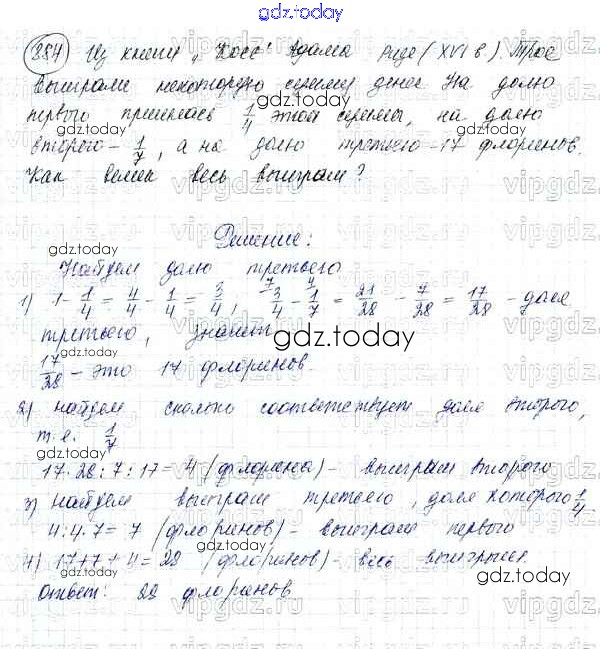 gdz.today
884 Из книги „Косс" Адама Ризе (XVI в.). Трое
выиграли некоторую сумму денег. На долю
первого пришлась 1/4 этой суммы, на долю
второго - 1/7, а на долю третьего - 17 флоринов.
Как велик весь выигрыш?
Решение:
Найдем долю третьего
1) 1 - 1/4 = 4/4 - 1/4 = 3/4, 3/4 - 1/7 = 21/28 - 7/28 = 17/28 - доля
третьего, значит
17/28 - это 17 флоринов.
2) найдем сколько соответствует доля второго,
т.е. 1/7
17 · 28 : 7 : 17 = 4 (флорина) - выиграл второго
3) найдем выиграш третьего, доля которого 1/4
4 : 4 · 7 = 7 (флоринов) - выиграш первого
4) 17+7+4=28 (флоринов) - весь выигрыш.
Ответ: 28 флоринов.